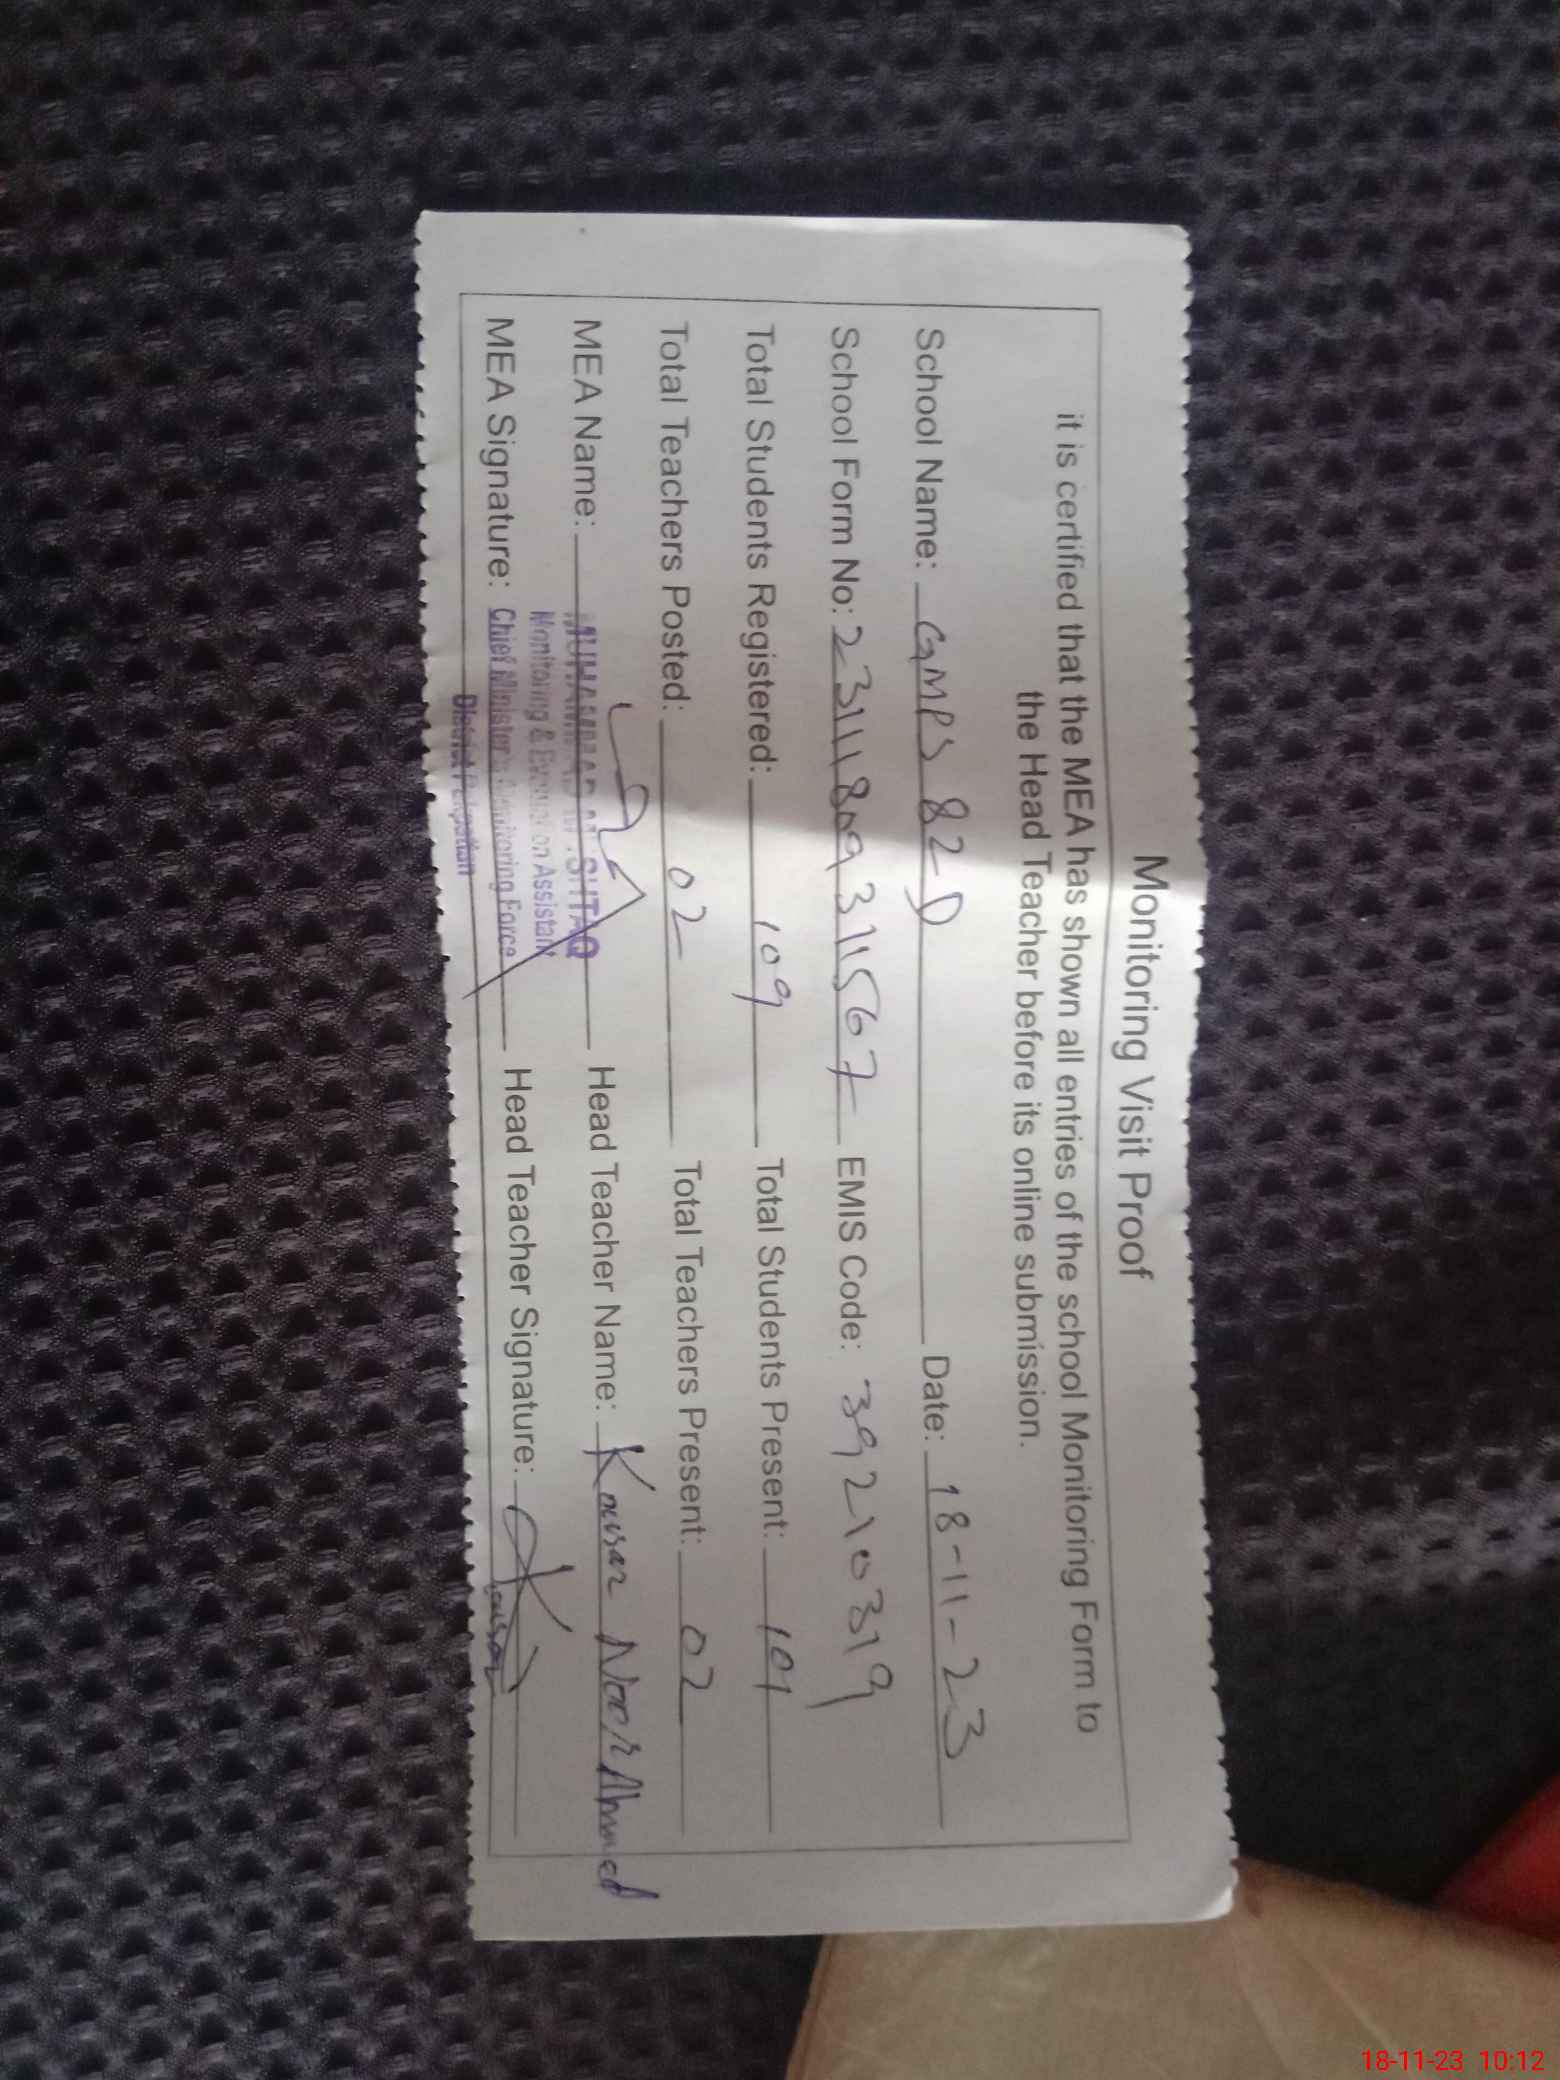 Monitoring Visit Proof
it is certified that the MEA has shown all entries of the school Monitoring Form to
the Head Teacher before its online submission.
School Name: GMPS 82-D Date: 18-11-23
School Form No: 2311180931567 EMIS Code: 39210319
Total Students Registered: 109 Total Students Present: 101
Total Teachers Posted: 02 Total Teachers Present: 02
MEA Name: MUHAMMAD MUSHTAQ Head Teacher Name: Kousar Noor Ahmed
Monitoring & Evaluation Assistant
MEA Signature: Chief Minister's Monitoring Force Head Teacher Signature: Kousar
District Pakpattan
18-11-23 10:12